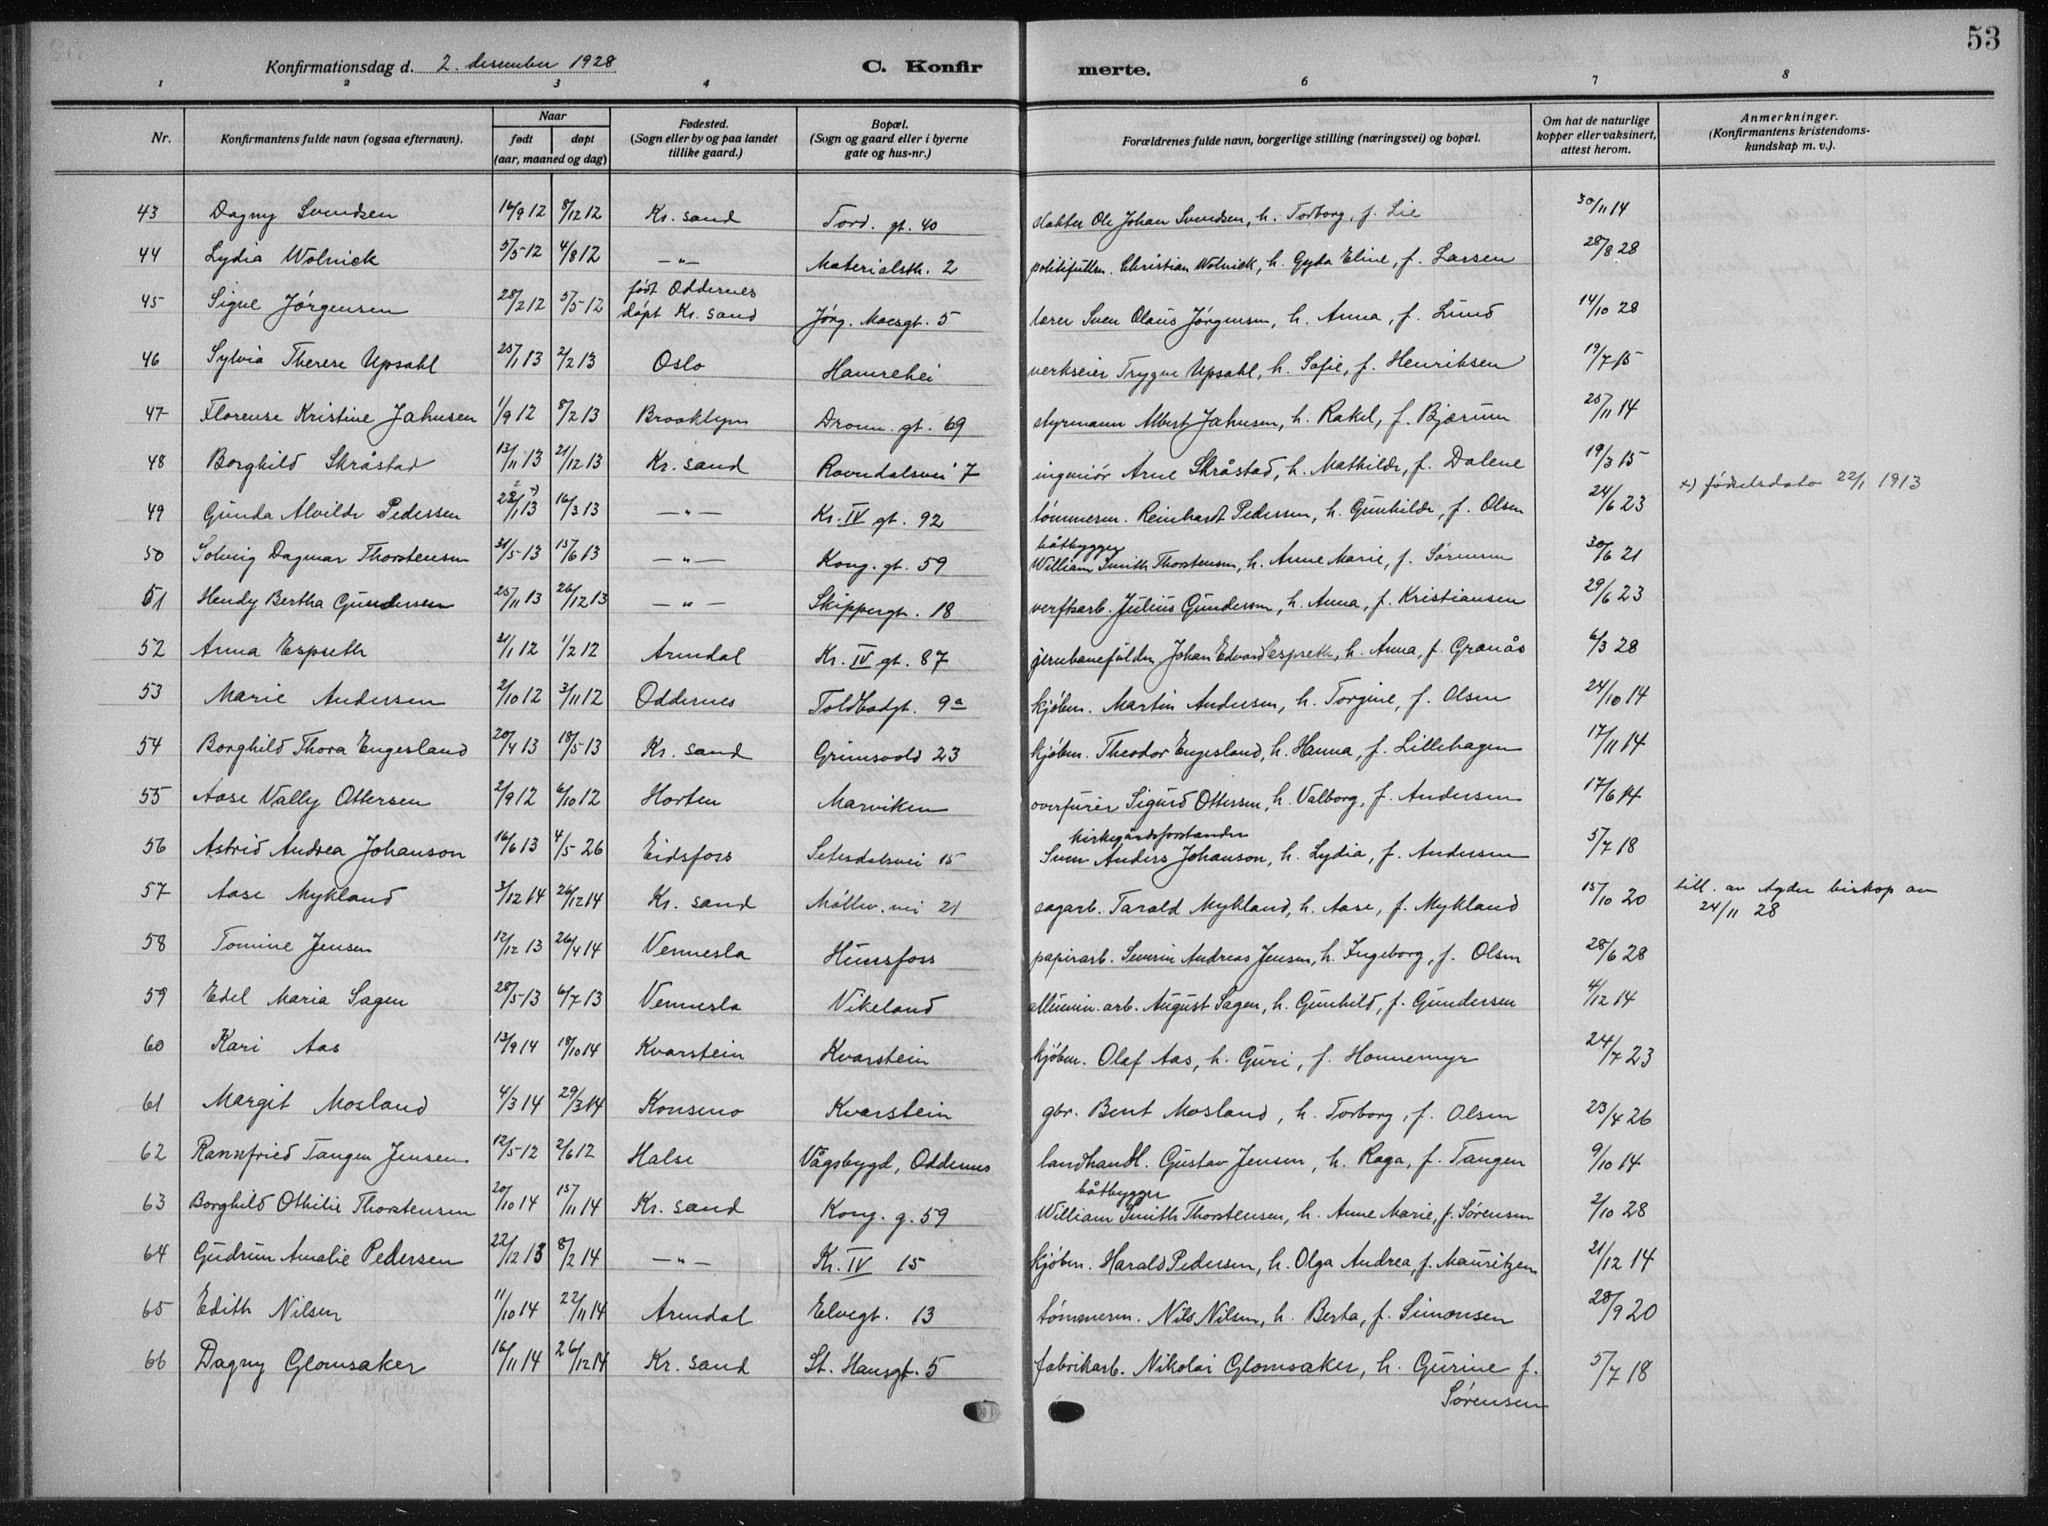 53
Konfirmationsdag d. 2. desember 1928
C. Konfir
merte.
1 2 3 4 6 7 8
Nr.
Konfirmantens fulde navn (ogsaa efternavn).
Naar
født døpt
(aar, maaned og dag)
Fødested.
(Sogn eller by og paa landet
tillike gaard.)
Bopæl.
(Sogn og gaard eller i byerne
gate og hus-nr.)
Forældrenes fulde navn, borgerlige stilling (næringsvei) og bopæl.
Om hat de naturlige
kopper eller vaksinert,
attest herom.
Anmerkninger.
(Konfirmantens kristendoms-
kundskap m. v.).
43 Dagny Svendsen 16/9 12 8/12 12 Kr. sand Tord. gt. 40 Ole Johan Svendsen, h. Torborg, f. Lie 30/11 14
44 Lydia Wolnick 5/5 12 4/8 12 —„— Materialstr. 2 politifullm. Christian Wolnick, h. Gyda Eline, f. Larsen 28/8 28
45 Signe Jørgensen 28/2 12 5/5 12 født Oddernes
døpt Kr. sand Jørg. Moesgt. 5 lærer Sven Olaus Jørgensen, h. Anna, f. Lund 14/10 28
46 Sylvia Therese Upsahl 25/1 13 2/2 13 Oslo Hamrehei verkseier Trygve Upsahl, h. Sofie, f. Henriksen 19/7 15
47 Florense Kristine Jahnsen 1/9 12 8/2 13 Brooklyn Dronn. gt. 69 styrmann Albert Jahnsen, h. Rakel, f. Bjærum 25/11 14
48 Borghild Skråstad 13/11 13 21/12 13 Kr. sand Ravndalsvei 7 ingeniør Arne Skråstad, h. Mathilde, f. Dalene 19/3 15
49 Gunda Alvilde Pedersen 22/1 13 x) 16/3 13 —„— Kr. IV gt. 92 tømmerm. Reinhardt Pedersen, h. Gunhilde, f. Olsen 24/6 23 x) fødselsdato 22/1 1913
50 Solveig Dagmar Thorstensen 31/5 13 15/6 13 —„— Kong. gt. 59 båtbygger
William Smith Thorstensen, h. Anne Marie, f. Sørensen 30/6 21
51 Hendy Bertha Gundersen 25/11 13 26/12 13 —„— Skippergt. 18 verftsarb. Julius Gundersen, h. Anna, f. Kristiansen 29/6 23
52 Anna Espseth 31/1 12 1/2 12 Arendal Kr. IV gt. 87 Johan Edvard Espseth, h. Anna, f. Granås 6/3 28
53 Marie Andersen 2/10 12 3/11 12 Oddernes Toldbodgt. 9a kjøbm. Martin Andersen, h. Torgine, f. Olsen 24/10 14
54 Borghild Thora Engesland 20/4 13 18/5 13 Kr. sand Grimsvold 23 kjøbm. Theodor Engesland, h. Hanna, f. Lillehagen 17/11 14
55 Aase Vally Ottersen 2/9 12 6/10 12 Horten Marviken overfurer Sigurd Ottersen, h. Valborg, f. Andersen 17/6 14
56 Astrid Andrea Johanson 16/6 13 4/5 26 Eidsfoss Setesdalsvei 15 kirkegårdsforstander
Sven Anders Johanson, h. Lydia, f. Andersen 5/7 18
57 Aase Mykland 3/12 14 26/12 14 Kr. sand Møllev. vei 21 sagarb. Tarald Mykland, h. Aase, f. Mykland 15/10 20 till. av Agder biskop av
24/11 28
58 Tomine Jensen 12/12 13 26/4 14 Vennesla Hunsfoss papirarb. Severin Andreas Jensen, h. Ingeborg, f. Olsen 28/6 28
59 Edel Maria Sagen 28/5 13 6/7 13 Vennesla Vikeland allumin. arb. August Sagen, h. Gunhild, f. Gundersen 4/12 14
60 Kari Aas 13/9 14 18/10 14 Kvarstein Kvarstein kjøbm. Olaf Aas, h. Guri, f. Honnemyr 24/7 23
61 Margit Mosland 4/3 14 29/3 14 Konsmo Kvarstein gbr. Bent Mosland, h. Torborg, f. Olsen 23/4 26
62 Rannfried Tangen Jensen 12/5 12 2/6 12 Halse Vågsbygd, Oddernes landhandl. Gustav Jensen, h. Raga, f. Tangen 9/10 14
63 Borghild Othilie Thorstensen 20/10 14 15/11 14 Kr. sand Kong. g. 59 båtbygger
William Smith Thorstensen, h. Anne Marie, f. Sørensen 2/10 28
64 Gudrun Amalie Pedersen 22/12 13 8/2 14 —„— Kr. IV 15 kjøbm. Harald Pedersen, h. Olga Andrea, f. Mauritzen 21/12 14
65 Edith Nilsen 11/10 14 22/11 14 Arendal Elvegt. 13 tømmerm. Nils Nilsen, h. Berta, f. Simonsen 28/9 20
66 Dagny Glomsaker 16/11 14 26/12 14 Kr. sand St. Hansgt. 5 fabrikarb. Nikolai Glomsaker, h. Gurine f.
Sørensen 5/7 18